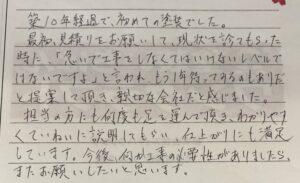 築10年経過で、初めての塗装でした。
最初、見積りをお願いして、現状を診てもらった
時に、「急いで工事をしなくてはいけないレベルで
はないですよ」と言われ、もう1年待ってみるのもありだ
と提案して頂き、親切な会社だと感じました。
担当の方にも何度も足を運んで頂き、わかりやす
くていねいに説明してもらい、仕上がりにも満足
しています。今後、何か工事の必要性がありましたら、
またお願いしたいと思います。